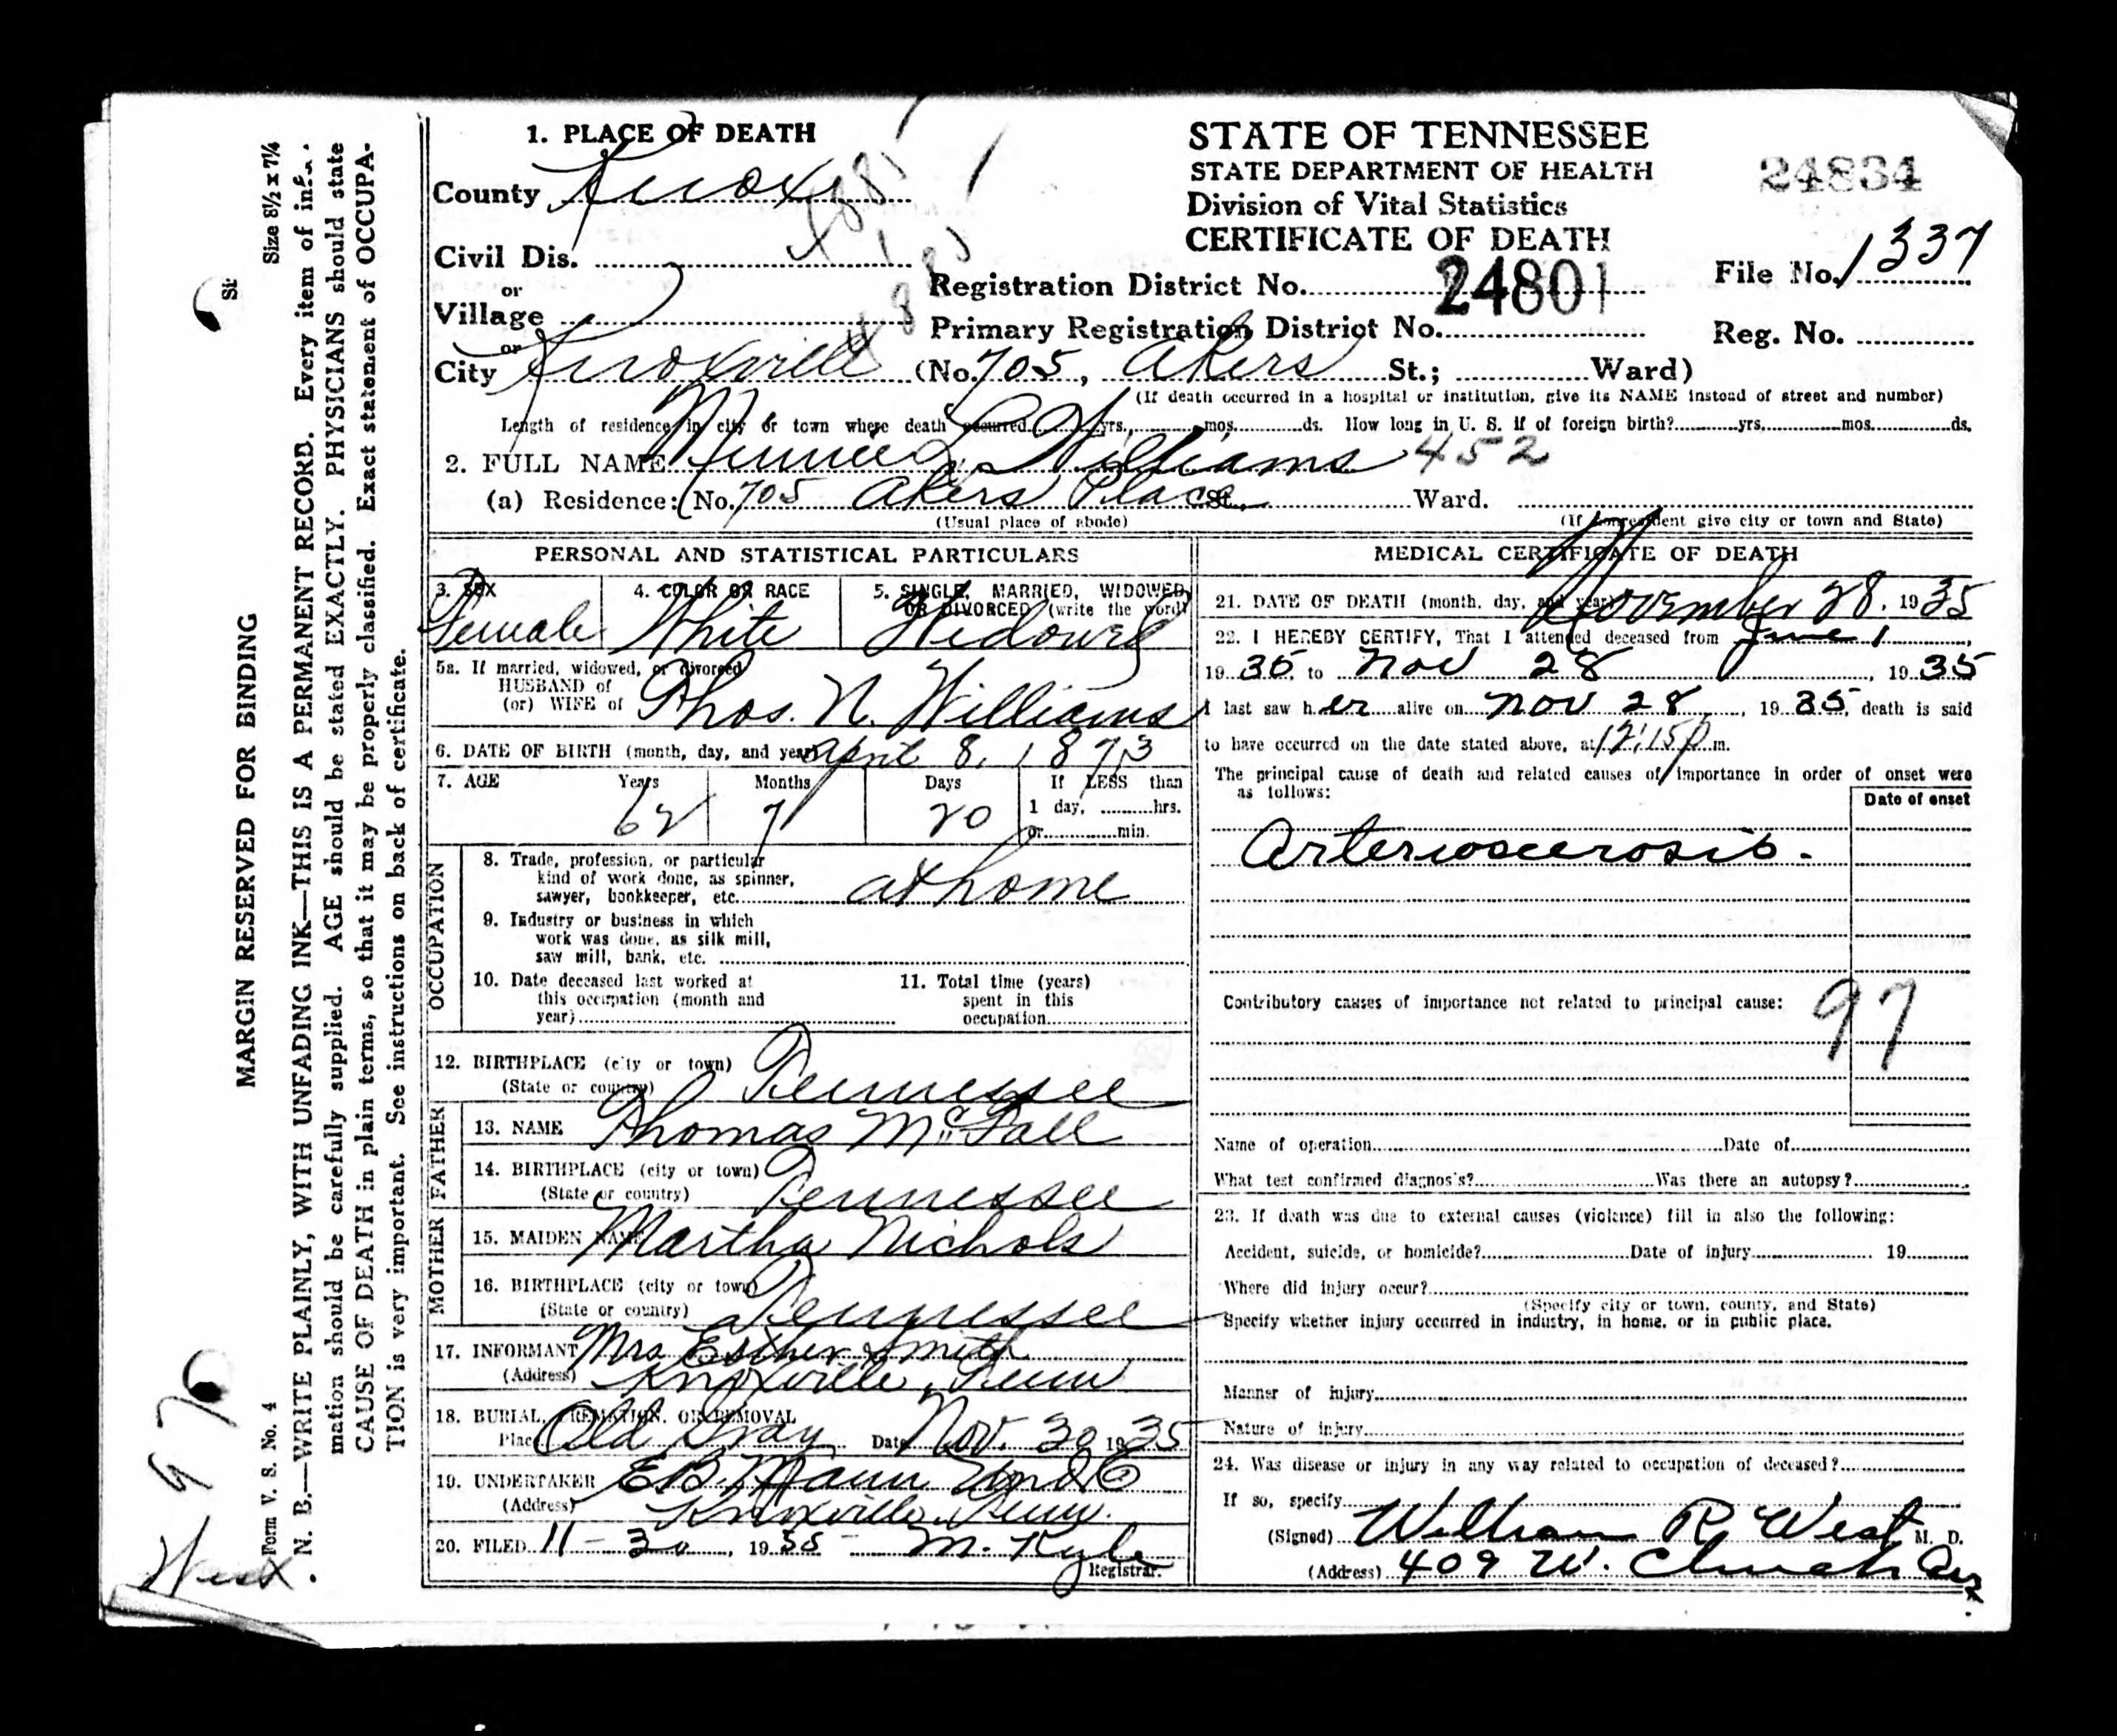 1. PLACE OF DEATH
County Knox
Civil Dis.
or
Village
or
City Knoxville (No. 705, Akers St.; Ward)
STATE OF TENNESSEE
STATE DEPARTMENT OF HEALTH
Division of Vital Statistics
CERTIFICATE OF DEATH
24834
Registration District No. 24801
File No. 1337
Primary Registration District No.
Reg. No.
(If death occurred in a hospital or institution, give its NAME instead of street and number)
Length of residence in city or town where death occurred yrs. mos. ds. How long in U. S. if of foreign birth? yrs. mos. ds.
2. FULL NAME Minnie L. Williams 452
(a) Residence: (No. 705 Akers Place St., Ward.
(Usual place of abode) (If nonresident give city or town and State)
PERSONAL AND STATISTICAL PARTICULARS
3. SEX 4. COLOR OR RACE 5. SINGLE, MARRIED, WIDOWED,
OR DIVORCED (write the word)
Female White Widowed
5a. If married, widowed, or divorced
HUSBAND of
(or) WIFE of Thos. N. Williams
6. DATE OF BIRTH (month, day, and year) April 8, 1873
7. AGE Years Months Days If LESS than
62 7 20 1 day, hrs.
or min.
OCCUPATION
8. Trade, profession, or particular
kind of work done, as spinner,
sawyer, bookkeeper, etc. at home
9. Industry or business in which
work was done, as silk mill,
saw mill, bank, etc.
10. Date deceased last worked at
this occupation (month and
year)
11. Total time (years)
spent in this
occupation
12. BIRTHPLACE (city or town)
(State or country) Tennessee
FATHER
13. NAME Thomas McFall
14. BIRTHPLACE (city or town)
(State or country) Tennessee
MOTHER
15. MAIDEN NAME Martha Nichols
16. BIRTHPLACE (city or town)
(State or country) Tennessee
17. INFORMANT Mrs Esther Smith
(Address) Knoxville, Tenn
18. BURIAL, CREMATION, OR REMOVAL
Place Old Gray Date Nov. 30 1935
19. UNDERTAKER E.B. Mann Und Co
(Address) Knoxville, Tenn.
20. FILED 11-30, 1935 M. Kyle
Registrar.
MEDICAL CERTIFICATE OF DEATH
21. DATE OF DEATH (month, day, and year) November 28, 1935
22. I HEREBY CERTIFY, That I attended deceased from June 1,
1935, to Nov 28, 1935
I last saw her alive on Nov 28, 1935, death is said
to have occurred on the date stated above, at 12:15 p m.
The principal cause of death and related causes of importance in order of onset were
as follows:
Date of onset
Arteriosclerosis.
Contributory causes of importance not related to principal cause:
97
Name of operation Date of
What test confirmed diagnosis? Was there an autopsy?
23. If death was due to external causes (violence) fill in also the following:
Accident, suicide, or homicide? Date of injury 19
Where did injury occur?
(Specify city or town, county, and State)
Specify whether injury occurred in industry, in home, or in public place.
Manner of injury
Nature of injury
24. Was disease or injury in any way related to occupation of deceased?
If so, specify
(Signed) William R. West M. D.
(Address) 409 W. Church Ave.
MARGIN RESERVED FOR BINDING
Size 8½ x 7¼
Form V. S. No. 4
N. B.—WRITE PLAINLY, WITH UNFADING INK—THIS IS A PERMANENT RECORD. Every item of infor-
mation should be carefully supplied. AGE should be stated EXACTLY. PHYSICIANS should state
CAUSE OF DEATH in plain terms, so that it may be properly classified. Exact statement of OCCUPA-
TION is very important. See instructions on back of certificate.
West